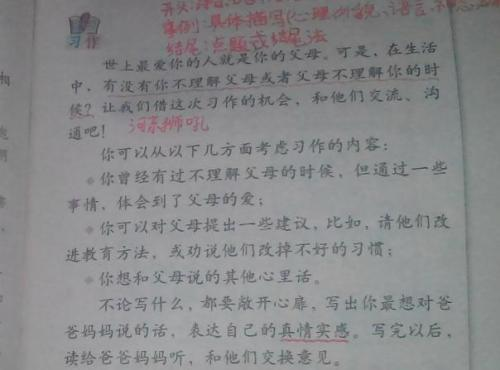 开头:
事例:具体描写(心理、外貌、语言、
结尾:点题或结尾法
习作
世上最爱你的人就是你的父母。可是,在生活
中,有没有你不理解父母或者父母不理解你的时
候?让我们借这次习作的机会,和他们交流、沟
通吧! 河东狮吼
你可以从以下几方面考虑习作的内容:
你曾经有过不理解父母的时候,但通过一些
事情,体会到了父母的爱;
你可以对父母提出一些建议,比如,请他们改
进教育方法,或劝说他们改掉不好的习惯;
你想和父母说的其他心里话。
不论写什么,都要敞开心扉,写出你最想对爸
爸妈妈说的话,表达自己的真情实感。写完以后,
读给爸爸妈妈听,和他们交换意见。